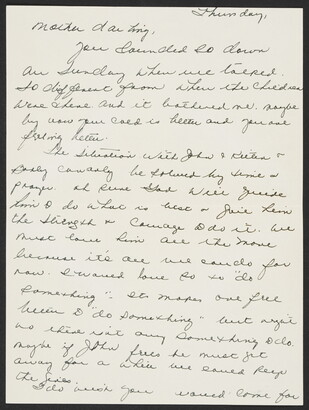 Thursday,
Mother darling,
You sounded so down
on Sunday when we talked.
So different from when the children
were there and it bothered me. Maybe
by now your cold is better and you are
feeling better.
The situation with John & &
can only be solved by time &
prayer. God will guide
him to do what is best & give him
the strength & courage to do it. We
must love him all the more
because it's all we can do for
now. I would love so to "do
something". It makes one feel
better to "do something" but
no there isn't any something to do.
Maybe if John feels he must get
away for a while we could keep
the
I do wish you would come for